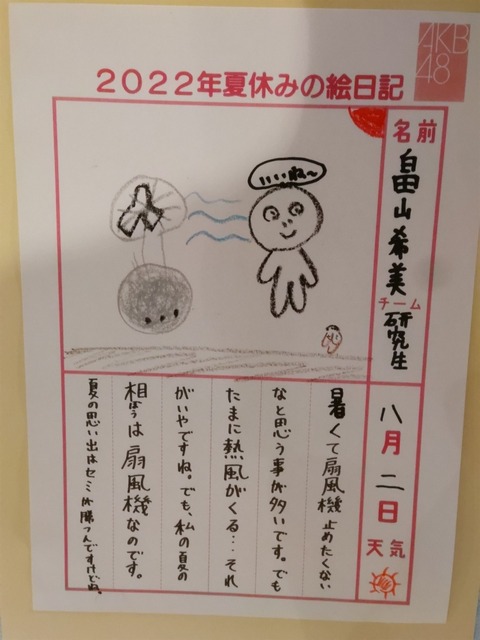 AKB
48
2022年夏休みの絵日記
名前
畠山希美
チーム
研究生
八月二日
天気
いいね〜
暑くて扇風機止めたくない
なと思う事が多いです。でも
たまに熱風がくる・・それ
がいやですね。でも、私の夏の
相ぼうは扇風機なのです。
夏の思い出はセミが勝つんですけどね。